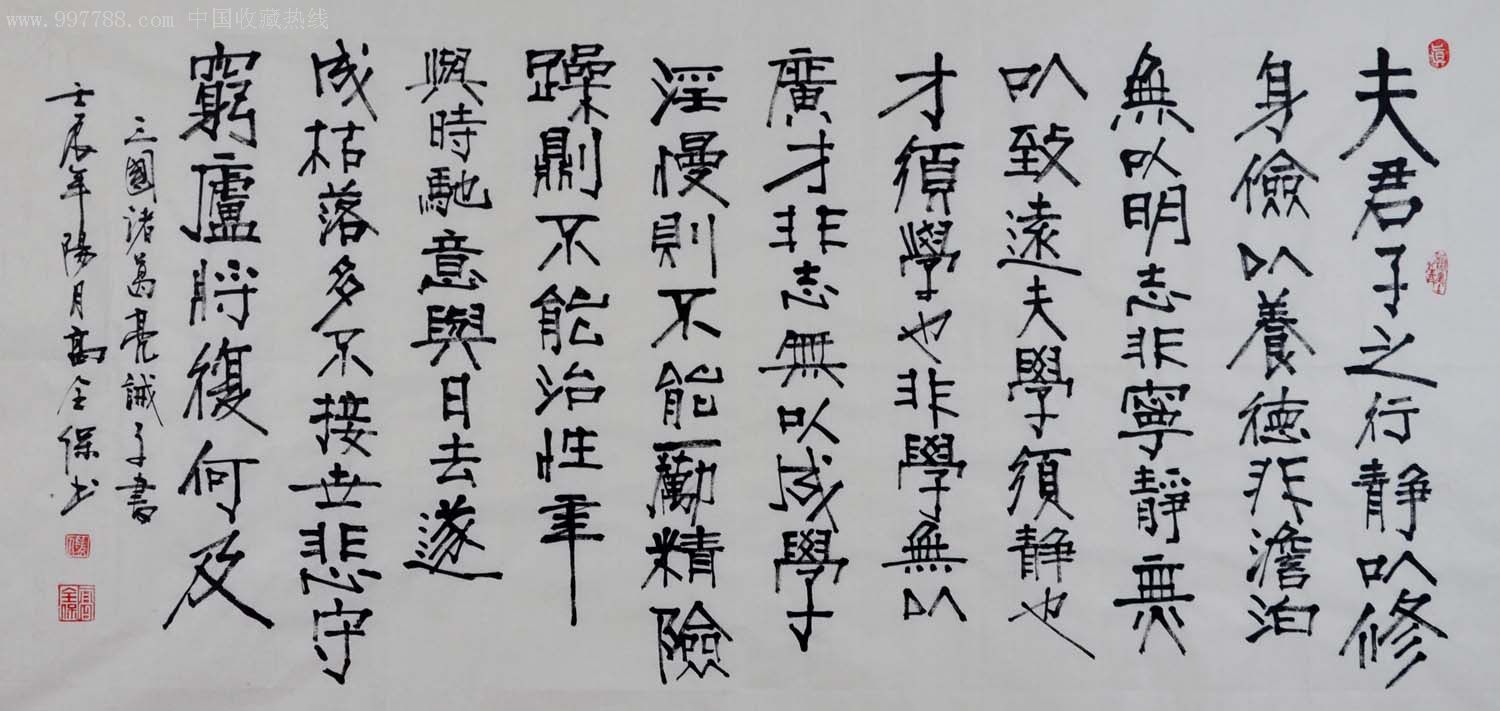 www.997788.com 中国收藏热线
夫君子之行静以修
身儉以養德非澹泊
無以明志非寧靜無
以致遠夫學須静也
才須學也非學無以
廣才非志無以成學
淫慢則不能勵精險
躁則不能治性年
與時馳意與日去遂
成枯落多不接世悲守
窮廬將復何及
三國諸葛亮誡子書
壬辰年陽月高全保书